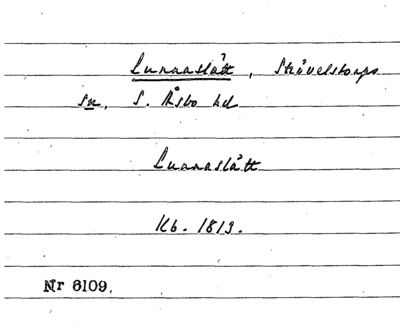 Lunnaslätt, Strövelstorps
sn, S. Åsbo hd
Lunnaslätt
Kb. 1813.
Nr 6109.